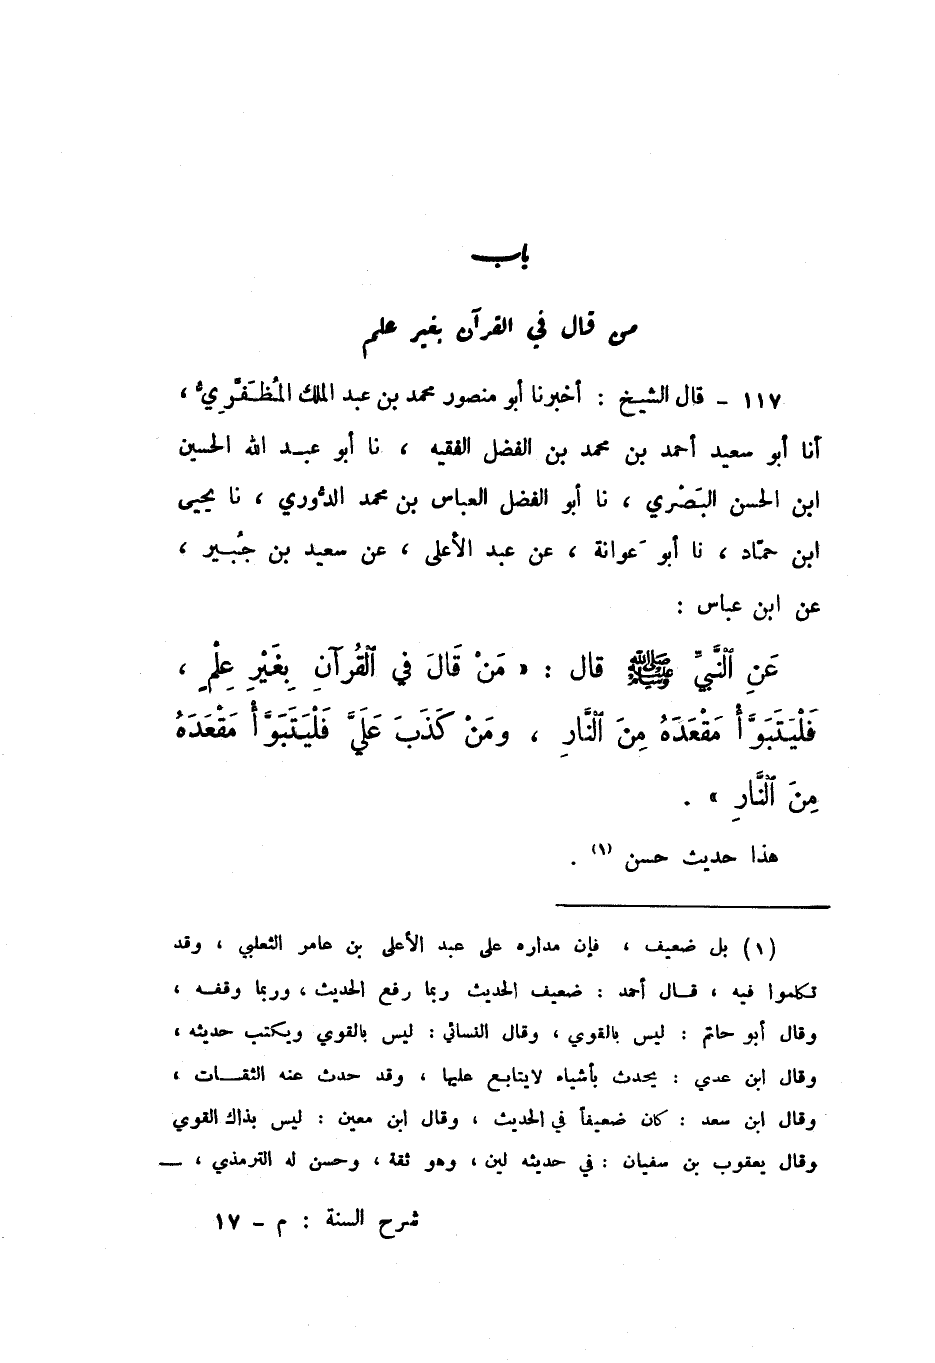 باب
من قال في القرآن بغير علم
١١٧ - قال الشيخ : أخبرنا أبو منصور محمد بن عبد الملك المُظَفَّرِيُّ ،
أنا أبو سعيد أحمد بن محمد بن الفضل الفقيه ، نا أبو عبد الله الحسين
ابن الحسن البَصْري ، نا أبو الفضل العباس بن محمد الدُّوري ، نا يحيى
ابن حمّاد ، نا أبو عَوانة ، عن عبد الأعلى ، عن سعيد بن جُبير ،
عن ابن عباس :
عَنِ ٱلنَّبِيِّ ﷺ قال : « مَنْ قَالَ فِي ٱلْقُرآنِ بِغَيْرِ عِلْمٍ ،
فَلْيَتَبَوَّأْ مَقْعَدَهُ مِنَ ٱلنَّارِ ، ومَنْ كَذَبَ عَلَيَّ فَلْيَتَبَوَّأْ مَقْعَدَهُ
مِنَ ٱلنَّارِ » .
هذا حديث حسن (١) .
(١) بل ضعيف ، فإن مداره على عبد الأعلى بن عامر الثعلبي ، وقد
تكلموا فيه ، قال أحمد : ضعيف الحديث ربما رفع الحديث ، وربما وقفه ،
وقال أبو حاتم : ليس بالقوي ، وقال النسائي : ليس بالقوي ويكتب حديثه ،
وقال ابن عدي : يحدث بأشياء لايتابع عليها ، وقد حدث عنه الثقات ،
وقال ابن سعد : كان ضعيفاً في الحديث ، وقال ابن معين : ليس بذاك القوي
وقال يعقوب بن سفيان : في حديثه لين ، وهو ثقة ، وحسن له الترمذي ، ــ
شرح السنة : م - ١٧